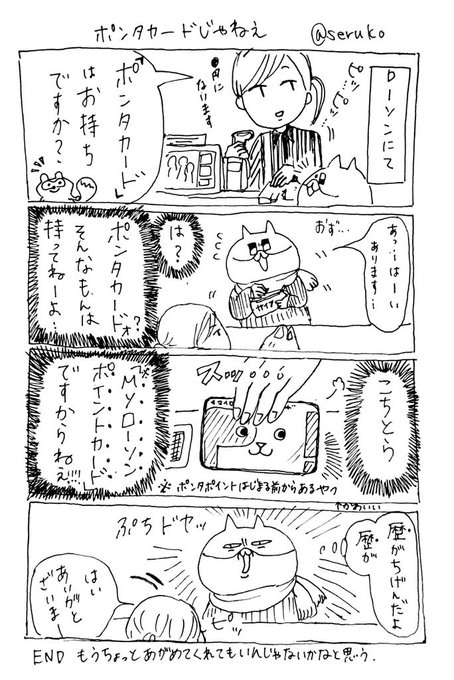 ポンタカードじゃねぇ
@seruko
ローソンにて
ピッ…ピッ…
●円に
なります
ポンタカード
はお持ち
ですか?
あっ…はーい
あります…
おず…
サイフ
は?
ポンタカードォ?
そんなもんは
持ってねーよ…
こちとら
スッ
マイロ
Myローソン
ポイントカード
ですからねぇ!!!!
※ポンタポイントはじまる前からあるやつ
やかわいい
歴がちげんだよ
歴が
ぷちドヤッ
ピッ
はい
ありがと
ざいまー
END もうちょっとあがめてくれてもいんじゃないかなと思う.